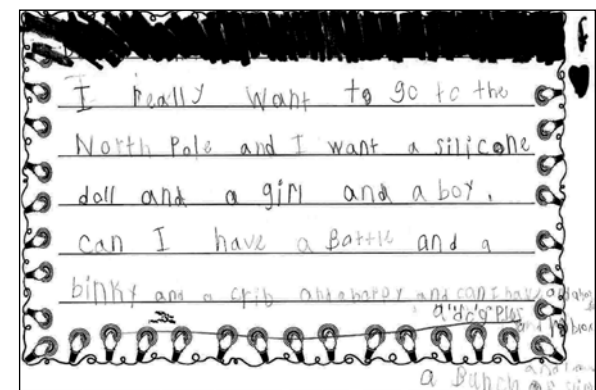 I really want to go to the
North Pole and I want a silicone
doll and a girl and a boy.
can I have a Battle and a
binky and a crib and and can I have
a dog Plus
and
a Bunch